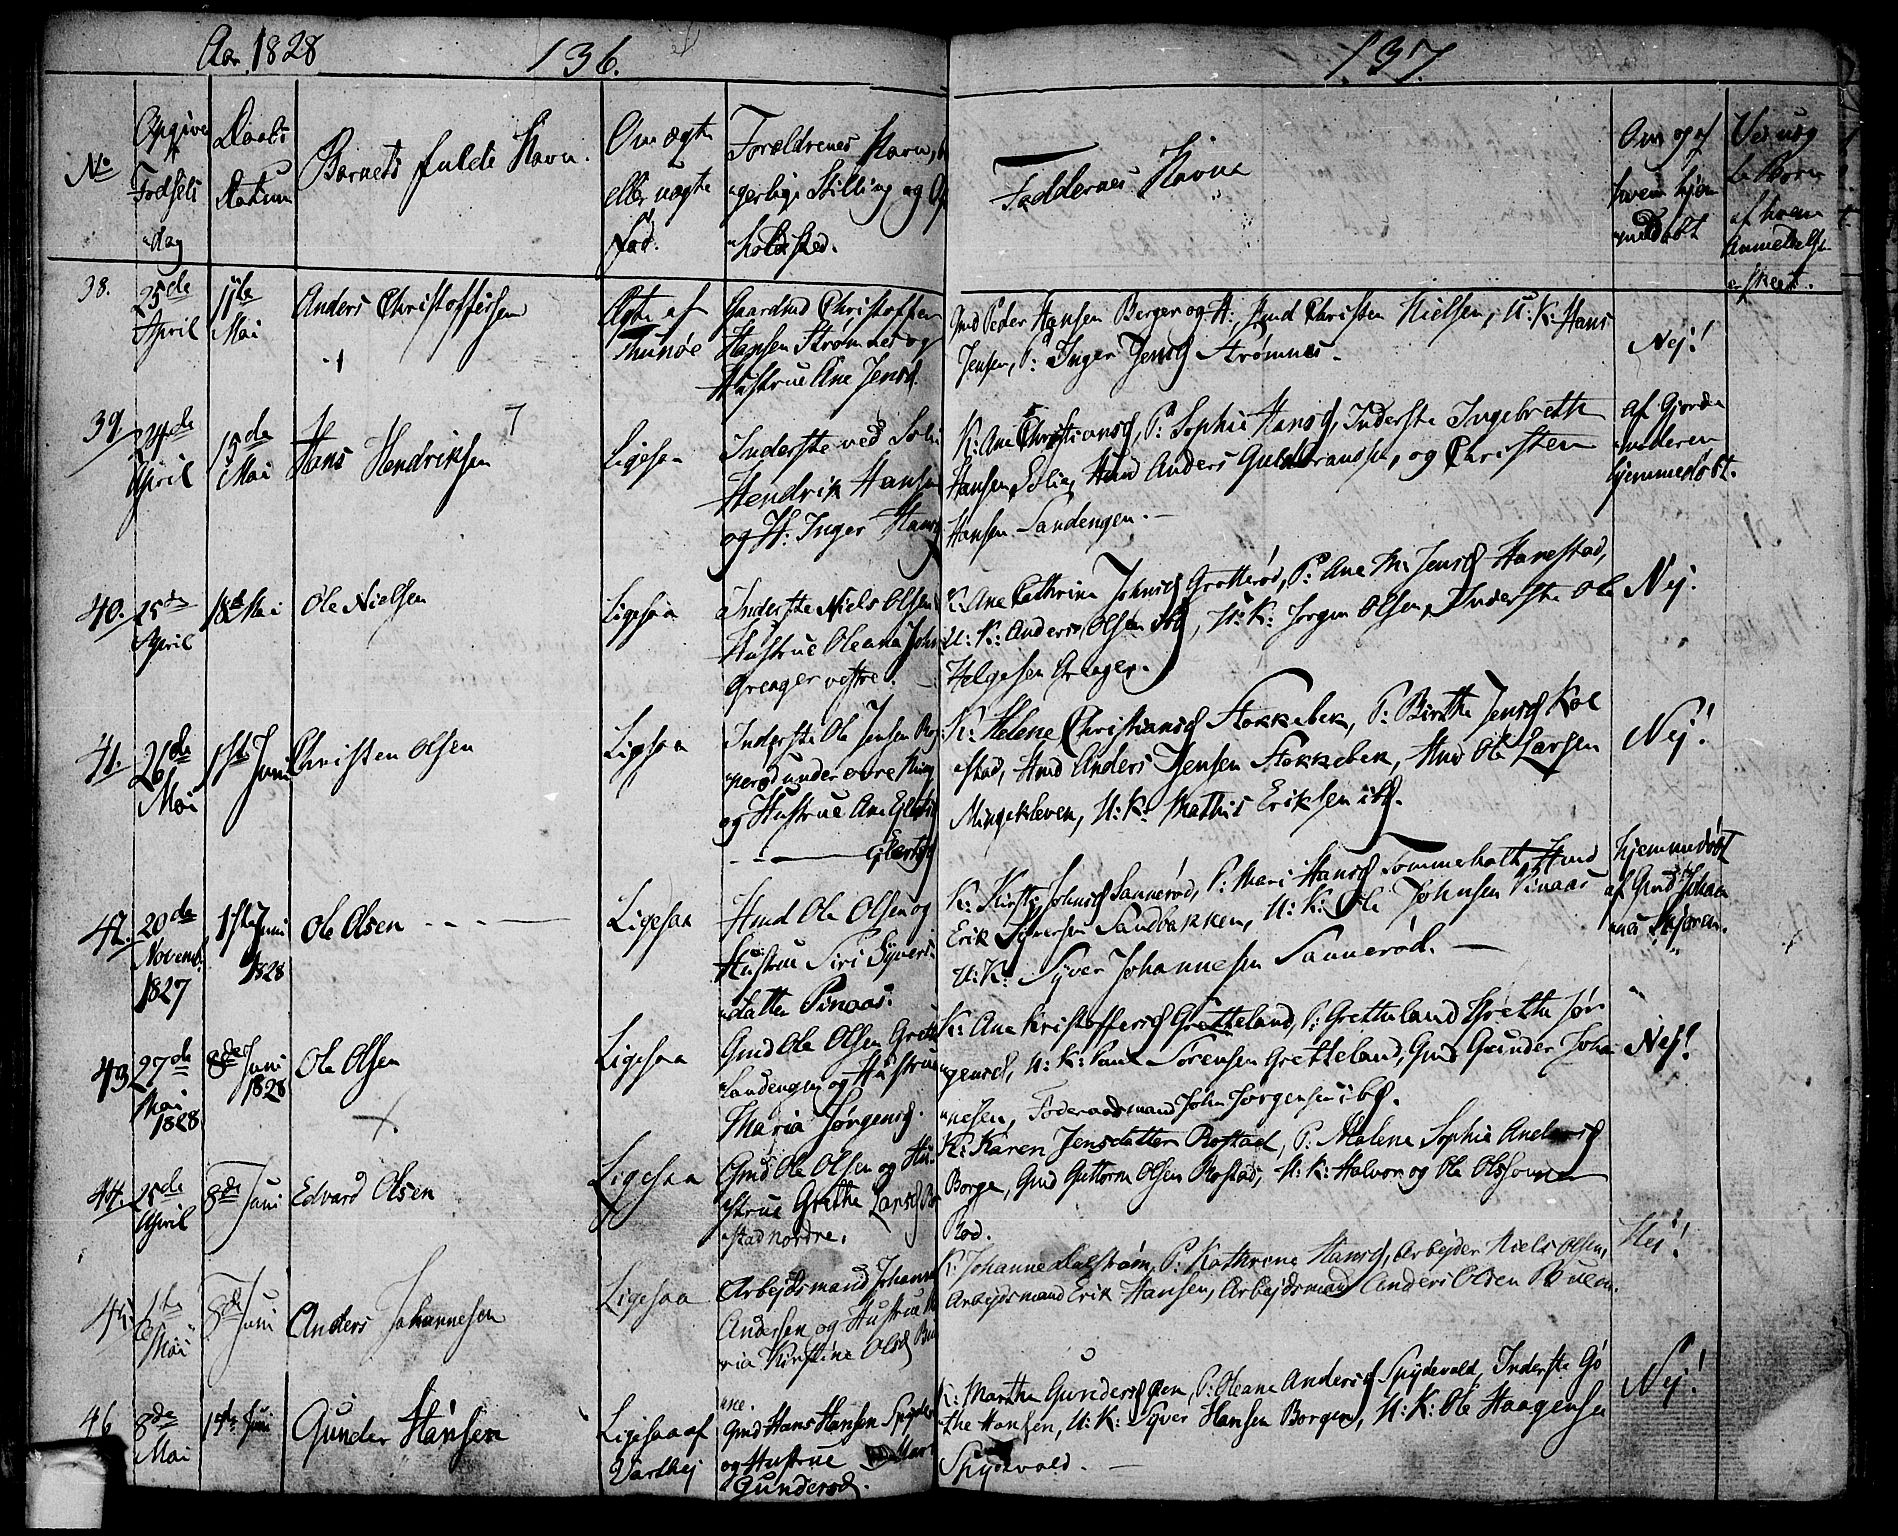 Aar 1828
136.
137.
No
Opgivne Fødsels dag
Daabs Datum
Barnets fulde Navn.
Om ægte eller uægte fød.
Forældrenes Navn, b
gerlige Stilling og Op
holdsted.
Faddernes Navne
Om og af hvem hjem
medøbt
Ved uæg
te Børn
af hvem
Anmeldelse
er skeet.
38.
25de April
11te Mai
Anders Christoffersen
Ægte af Thunøe
Gaardmd Christoffer
Hansen Strømnes og
Hustrue Ane Jensd.
Gmd Peder Hansen Berger og H: Hmd Christen Nielsen, U: K: Hans
Jensen, P: Inger Jensd Strømnes.
Nej!
39.
24de April
15de Mai
Hans Hendriksen
Ligesaa
Inderste ved Solie
Hendrik Hansen
og H: Inger Hansd
K: Ane Christiansd, P: Sophie Hansd, Inderste Ingebreth
Hansen Solie, Hmd Anders Guldbrandsen, og Christen
Hansen Sandengen.
af Gjorde
moderen
hjemmedøbt.
40.
25de April
18de Mai
Ole Nielsen
Ligesaa
Inderste Niels Olsen
Hustrue Oleana John
Grenager vestre.
K: Ane Cathrine Johnsd Grotterød, P: Ane M: Jensd Hanestad,
U: K: Anders Olsen ibd, U: K: Jørgen Olsen, Inderste Ole
Helgesen Grenager.
Nej.
41.
26de Mai
1ste Juni
Christen Olsen
Ligesaa
Inderste Ole Jensen
perød under øvre
og Hustrue Ane
Glertsd
K: Helene Christiansd Stokkebek, P: Birthe Jensd Kol
stad, Hmd Anders Jensen Stokkebek, Hmd Ole Larsen
Mingekleven, U: K: Mathis Eriksen ibd.
Nej!
42.
20de Novemb. 1827
1ste Juni 1828
Ole Olsen
Ligesaa
Hmd Ole Olsen og
Hustrue Siri Syvers
datter Pinaas.
K: Kirsti Johnsd Sannerød, P: Mari Hansd Tommeholt, Hmd
Erik Syversen Sandbakken, U: K: Ole Johnsen Pinaas
U: K: Syver Johannesen Sannerød.
hjemmedøbt
af Gmd Johan
nes Skjøren.
43
27de Mai 1828
8de Juni 1828
Ole Olsen
Ligesaa
Gmd Ole Olsen Grette
landengen og Hustrue
Maria Jørgensd.
K: Ane Kristoffersd Gretteland, P: Gretteland Grethe Jør
gensd, U: K: Paul Sørensen Gretteland, Gmd Gunder Joha
nesen, Føderaadsmand John Jørgensen ibd.
Nej!
44.
25de April
8de Juni
Edvard Olsen
Ligesaa
Gmd Ole Olsen og Hu
strue Grethe Larsd Ro
stad nordre.
K: Karen Jensdatter Rostad, P: Malene Sophie Andersd
Borge, Gmd Guttorm Olsen Rostad, U: K: Halvor og Ole Olssønner
Rød.
Nej!
45.
1ste Mai
8de Juni
Anders Johannesen
Ligesaa
Arbejdsmand Johannes
Andersen og Hustrue Ma
ria Kirstine Olsd Bu
ene.
K: Johanne Dalstrøm, P: Kathrine Hansd, Arbejder Niels Olsen,
Arbejdsmand Erik Hansen, Arbejdsmand Anders Olsen Buene.
46
8de Mai
14de Juni
Gunder Hansen
Ligesaa af Varthej
Gmd Hans Hansen Spyde
og Hustrue Mart
Gundersd.
K: Marthe Gundersd Øen, P: Oleane Andersd Spydevold, Inderste Gö
the Hansen, U: K: Syver Hansen Borgen, U: K: Ole Haagensen
Spydevold.
Nej!